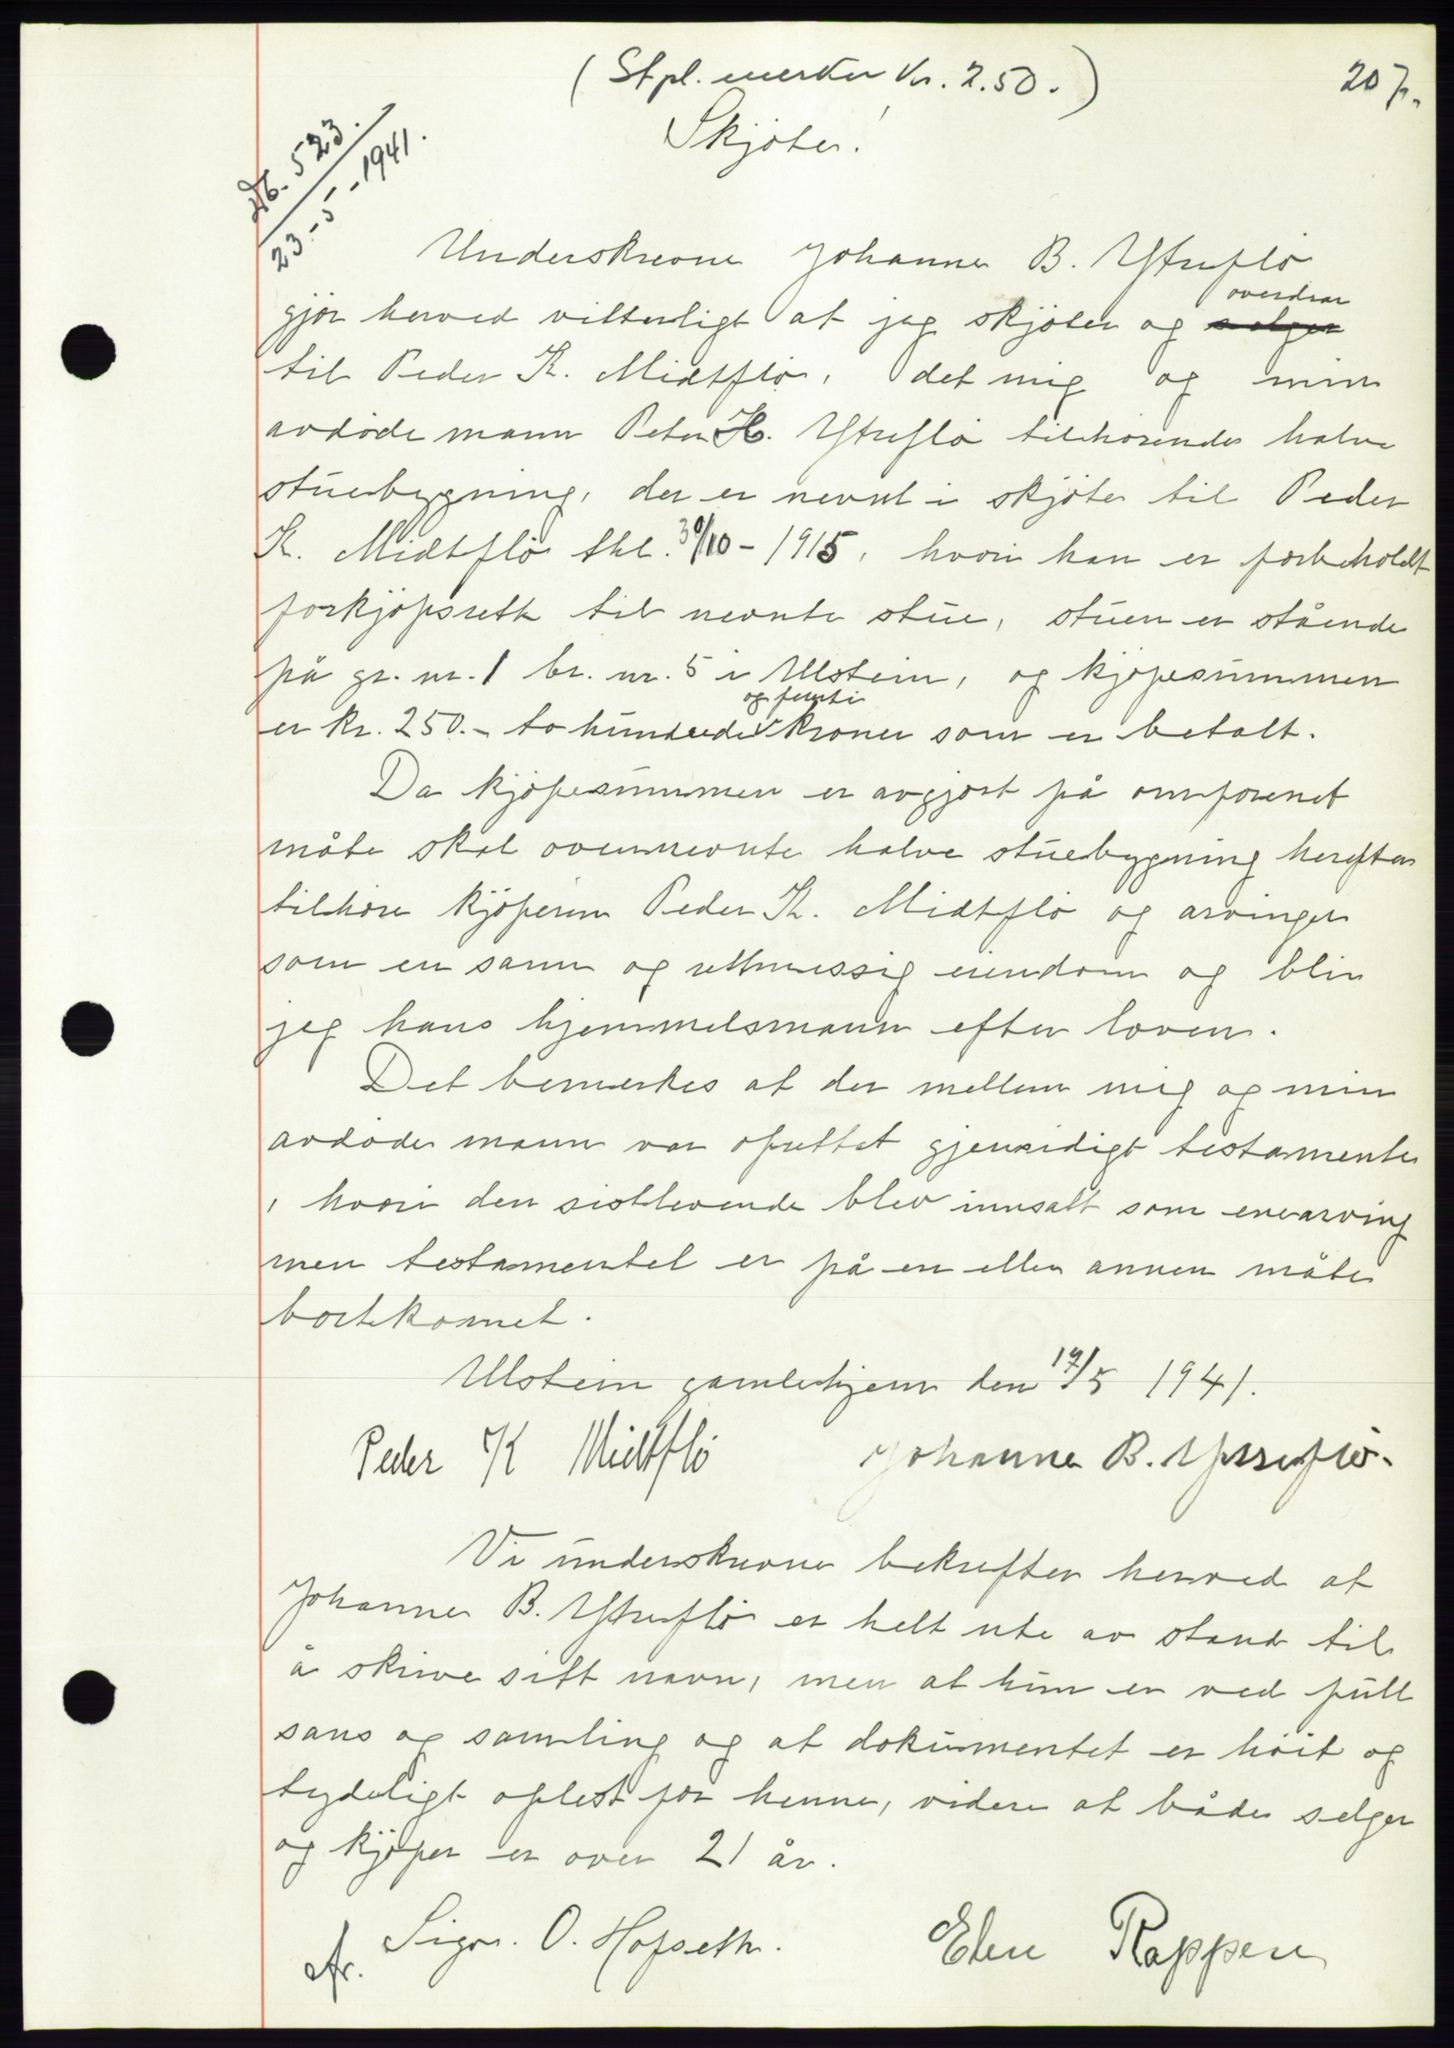 (Stpl. merker kr. 2.50.)
207.
Skjøte!
Db. 523.
23-5-1941.
Underskrevne Johanne B. Ytreflø
overdrar
gjør herved vitterligt at jeg skjøter og selger
til Peder K. Midtflø, det mig og min
avdøde mann Peter H. Ytreflø tilhørende halve
stuebygning, der er nevnt i skjøte til Peder
K. Midtflø thl. 30/10-1915, hvori han er forbeholdt
forkjøpsrett til nevnte stue, stuen er stående
på gr. nr. 1 br. nr. 5 i Ulstein, og kjøpesummen
og femti
er kr. 250.- to hundrede kroner som er betalt.
Da kjøpesummen er avgjort på omforenet
måte skal ovennevnte halve stuebygning herefter
tilhøre kjøperen Peder K. Midtflø og arvinger
som en sann og rettmessig eiendom og blir
jeg hans hjemmelsmann efter loven.
Det bemerkes at der mellem mig og min
avdøde mann var oprettet gjensidigt testamente
, hvori den sistlevende blev innsatt som enearving
men testamentet er på en eller annen måte
bortkomet.
Ulstein gamlehjem den 17/5 1941.
Peder K Midtflø Johanne B. Ytreflø.
Vi underskrevne bekrefter herved at
Johanne B. Ytreflø er helt ute av stand til
å skrive sitt navn, men at hun er ved full
sans og samling og at dokumentet er høit og
tydeligt oplest for henne, videre at både selger
og kjøper er over 21 år.
Sign. O. Hofseth. Elen Rappen
afr.